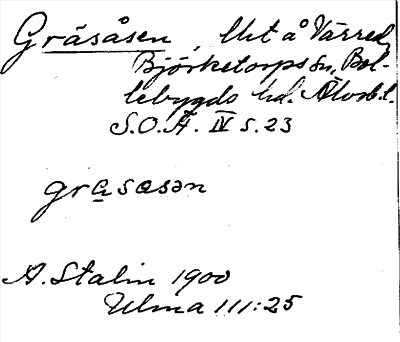 Gräsåsen, Utt å Värred,
Björketorps sn, Bol-
lebygds hd. Älvsb. l.
S.O.Ä. IV s. 23
grasasən
A. Stalin 1900
Ulma 111:25